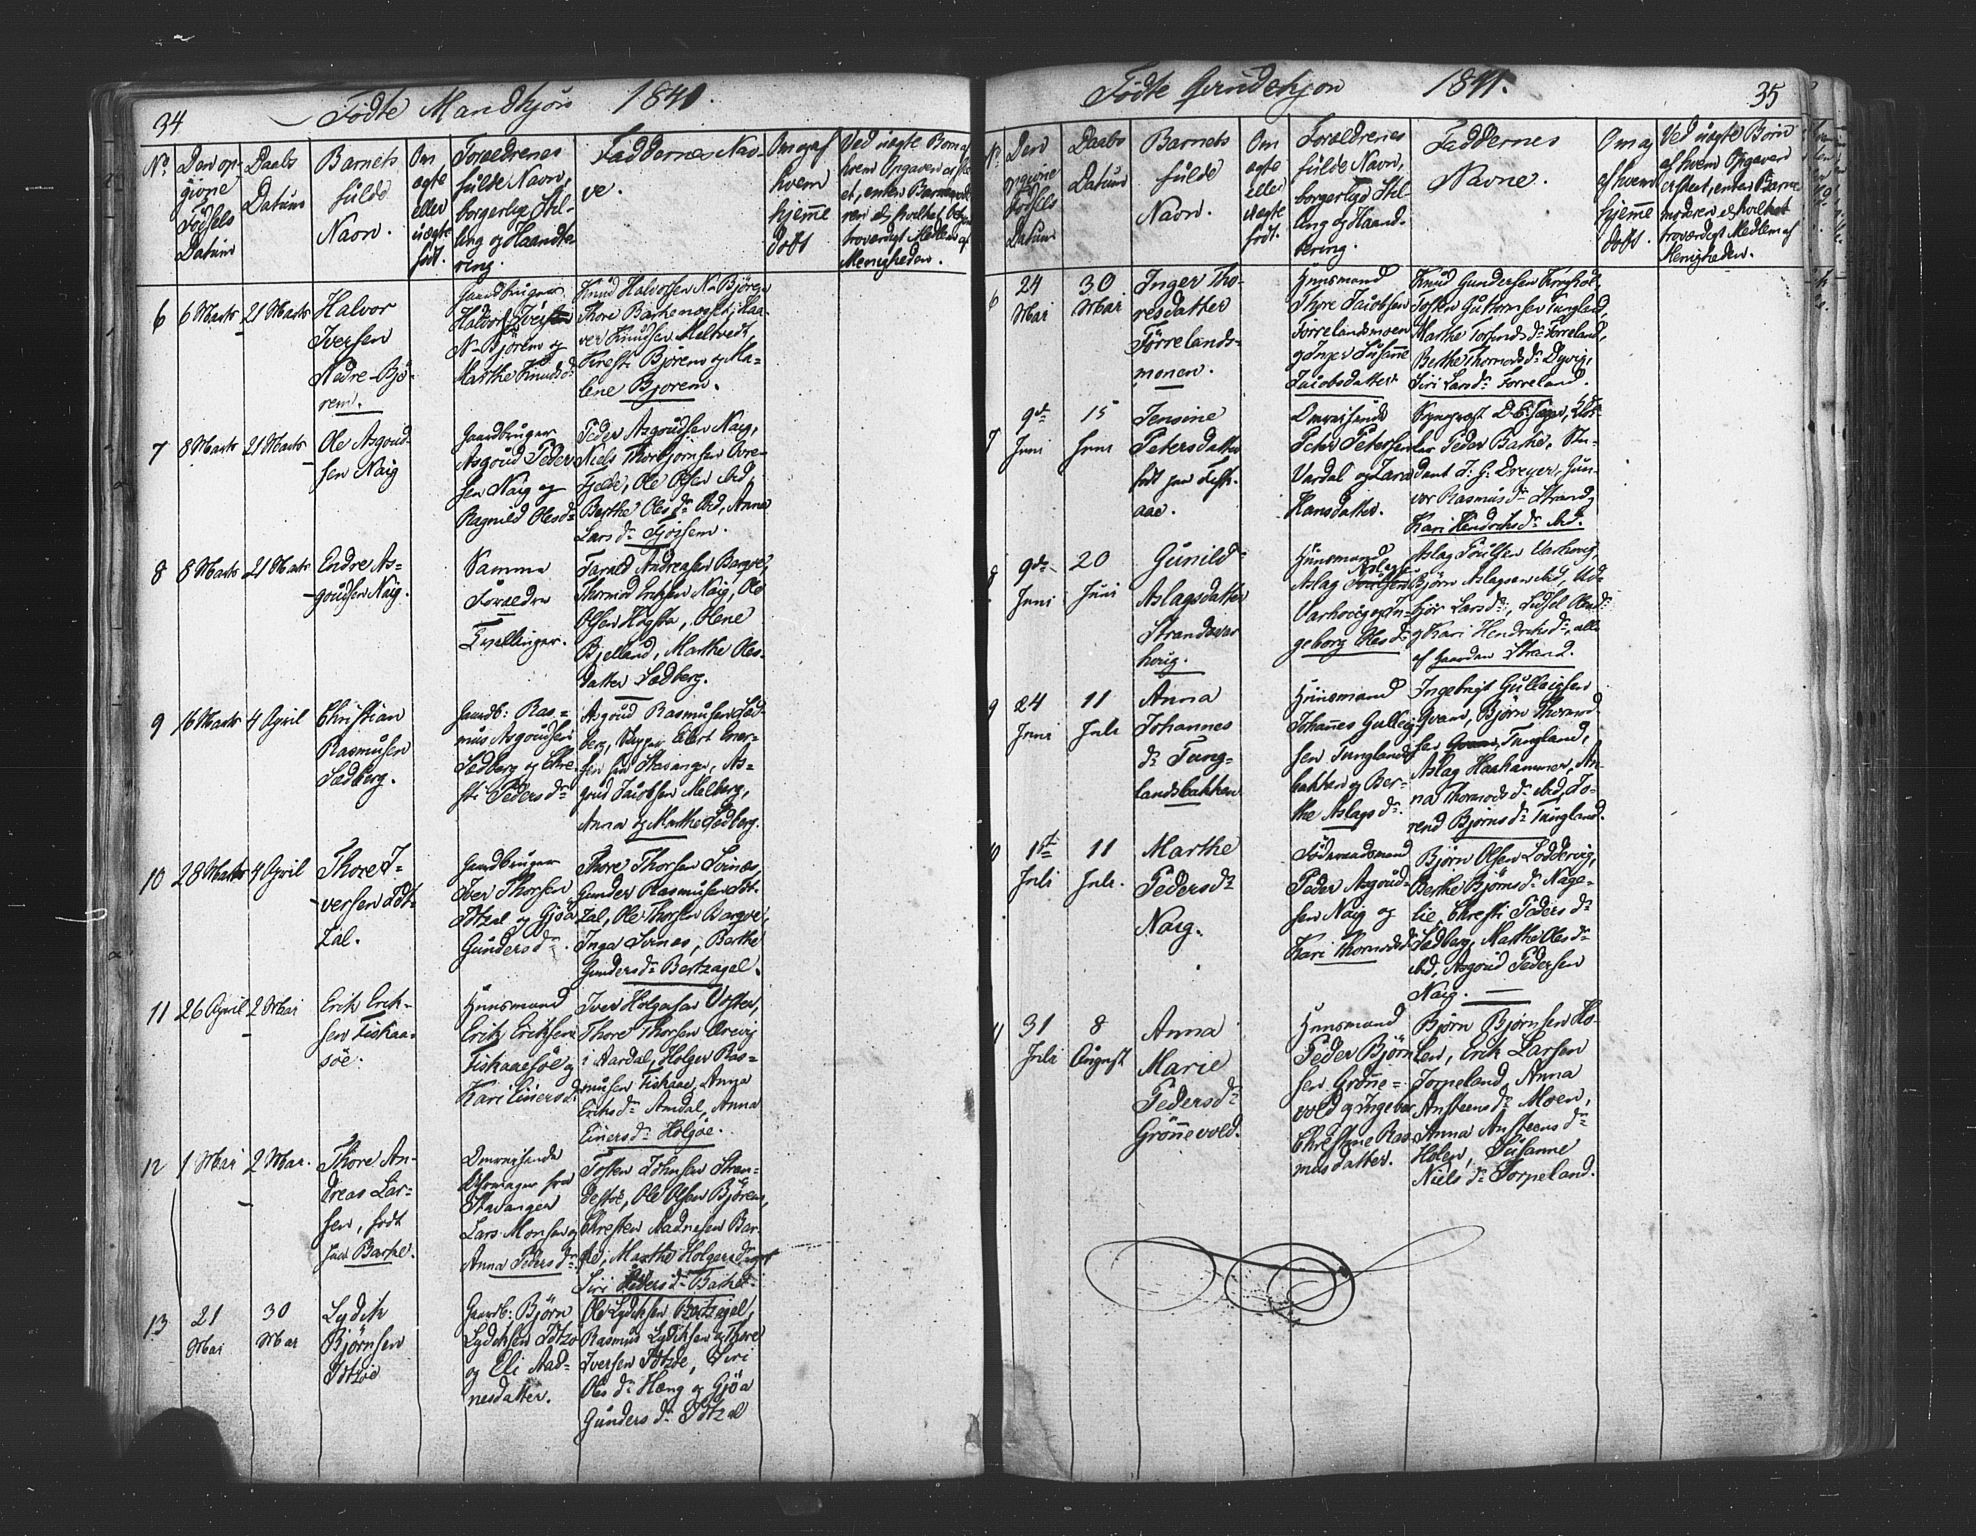 34
Födte Mandkjön 1841.
No
Den op-
givne
Födsels
Datum
Daabs
Datum
Barnets
fulde
Navn.
Om
ægte
eller
uægte
födt.
Forældrenes
fulde Navn,
borgerlige Stil-
ling og Haandte-
ring.
Faddernes Nav-
ne.
Om og af
hvem
hjemme
döbt
Ved uægte Börn af
hvem Opgaven er ske-
et, enten Barnemode-
ren el. hvilket
troværdigt Medlem af
Menigheden.
6
6 Marts
21 Marts
Halvor
Iversen
Nedre-Bjö-
rem.
Gaardbruger
Halvor Iversen
N-Björem og
Marthe Knudsdr
Knud Halvorsen N-Björem
Thore Barkemoset, Haa-
ver Knudsen Meltvedt
Kirsti Björem og Ma-
lene Bjorem.
7
8 Marts
21 Marts
Ole Asgoud-
sen Naig
Gaardbruger
Asgoud Peder-
sen Naig og
Ragnild Olesdr
Peder Asgoudsen Naig,
Niels Thorbjörnsen Övre-
Ole Olsen ibid,
Berthe Olesdr ibid, Anna
Larsdr
8
8 Marts
21 Marts
Endre As-
goudsen Naig.
Samme
Forældre
Tvillinger.
Tarald Andreasen Bergve,
Thormod Naig, Ole
Olsen Högsta, Olene
Bjelland, Marthe Oles-
datter Sedberg.
9
16 Marts
4 April
Christian
Rasmusen
Sedberg.
Gaardb: Ras-
mus Asgoudsen
Sedberg og Chre-
sti Pedersdr
Asgoud Rasmusen Sed-
berg, Eilert Iver-
sen fra Stavanger, As-
goud Jacobsen Melberg,
Anna og Marthe Sedberg.
10
28 Marts
4 April
Thore I-
versen Idt-
zal.
Gaardbruger
Iver Thorsen
Idtzal og Gjöa
Gundersdr
Thore Thorsen Svines,
Gunder Rasmusen Idt-
zal, Ole Thorsen Bergve,
Inga Svines, Berthe
Gundersdr Bertzagel.
11
26 April
2 Mai
Erik Erik-
sen Fiskaa-
söe.
Huusmand
Erik Eriksen
Fiskaaesöe og
Kari Einersdr
Iver Holgesen Voster,
Thore Thorsen Örevig
i Aardal, Holger Ras-
musen Fiskaae, Anna
Eriksdr Amdal, Anna
Einersdr Holgöe.
12
1 Mai
2 Mai.
Thore An-
dreas Lar-
sen, födt
paa Barke.
Omreisende
fra
Stavanger
Lars Monsen og
Anna Pedersdr
Tosten Johnsen Stran-
Ole Olsen Björem,
Chresten Aadnesen Bar-
ke, Marthe Holgersdr og
Siri Pedersdr Barke.
13
21
Mai
30
Mai
Lydik
Björnsen
Idtzöe
Gaardb: Björn
Lydiksen Idtzö
og Eli Aad-
nesdatter.
Ole Lydiksen Bertzagel,
Rasmus Lydiksen og Thore
Iversen Idtzöe, Siri
Olesdr Heng og Gjöa
Gundersdr Idtzal
Födte Qvindekjön 1841.
35
No
Den
opgivne
Födsels
Datum
Daabs
Datum
Barnets
fulde
Navn.
Om
ægte
eller
uægte
födt.
Forældrenes
fulde Navn,
borgerlige Stil-
ling og Haand-
tering.
Faddernes
Navne.
Om og
af hvem
hjemme
döbt.
Ved uægte Börn
af hvem Opgaven
er skeet, enten Barne-
moderen el. hvilket
troværdigt Medlem af
Menigheden.
6
24
Mai
30
Mai
Inger Tho-
resdatter
Förrelands-
monen.
Huusmand
Thore Jacobsen
Forrelandsmoen
og Inger Susanne
Jacobsdatter
Knud Gundersen
Tosten Guttormsen Tungland,
Marthe Torfindsdr Forreland,
Berthe Thormodsdr Dyvig,
Siri Larsdr Forreland.
7
9de
Juni
15
Juni
Jensine
Petersdatter
födt paa Fisk-
aae.
Omreisende
Peter Petersen
Vardal og Zara
Hansdatter.
Peder Barke, Stu-
dent J: G: Dreyer, Gun-
vor Rasmusdr Strand,
Kari Hendriksdr ibid.
8
9de
Juni
20
Juni
Gunild
Aslagsdatter
Strandevar-
houg.
Huusmand
Aslag Aslags
Varhoug og In-
geborg Olesdr
Aslag Varhoug,
Björn Aslagsen ibid, Ud-
björ Larsdr, Sidsel Olesdr
og Kari Hendriksdr, alle
af Gaarden Strand.
9
24
Juni
11
Juli
Anna
Johannes
dr Tung-
landsbakken
Huusmand
Johannes Gulleig-
sen Tunglands-
bakken og Ber-
the Aslagsdr
Ingebrigt Gulleigsen
Qvam, Björn Thormod-
sen Tungland,
Aslag Haahammer, An-
na Thormodsdr ibid, To-
rend Björnsdr Tungland.
10
1ste
Juli
11
Juli.
Marthe
Pedersdr
Naig.
Föderaadsmand
Peder Asgoud-
sen Naig og
Kari Thormodsdr
Björn Olsen Loddervig,
Berthe Björnsdr Nage-
lie, Chresti Pedersdr
Sedberg, Marthe Olesdr
ibid, Asgoud Pedersen
Naig.
11
31
Juli
8
August
Anna
Marie
Pedersdr
Grönnevold.
Huusmand
Peder Björn-
sen Grönne-
vold og Ingebor
Chrestine Ras-
musdatter.
Björn Björnsen Ho-
len, Erik Larsen
Torpeland, Anna
Ansteensdr Moen,
Anna Ansteensdr
Holen, Susanne
Nielsdr Torpeland.